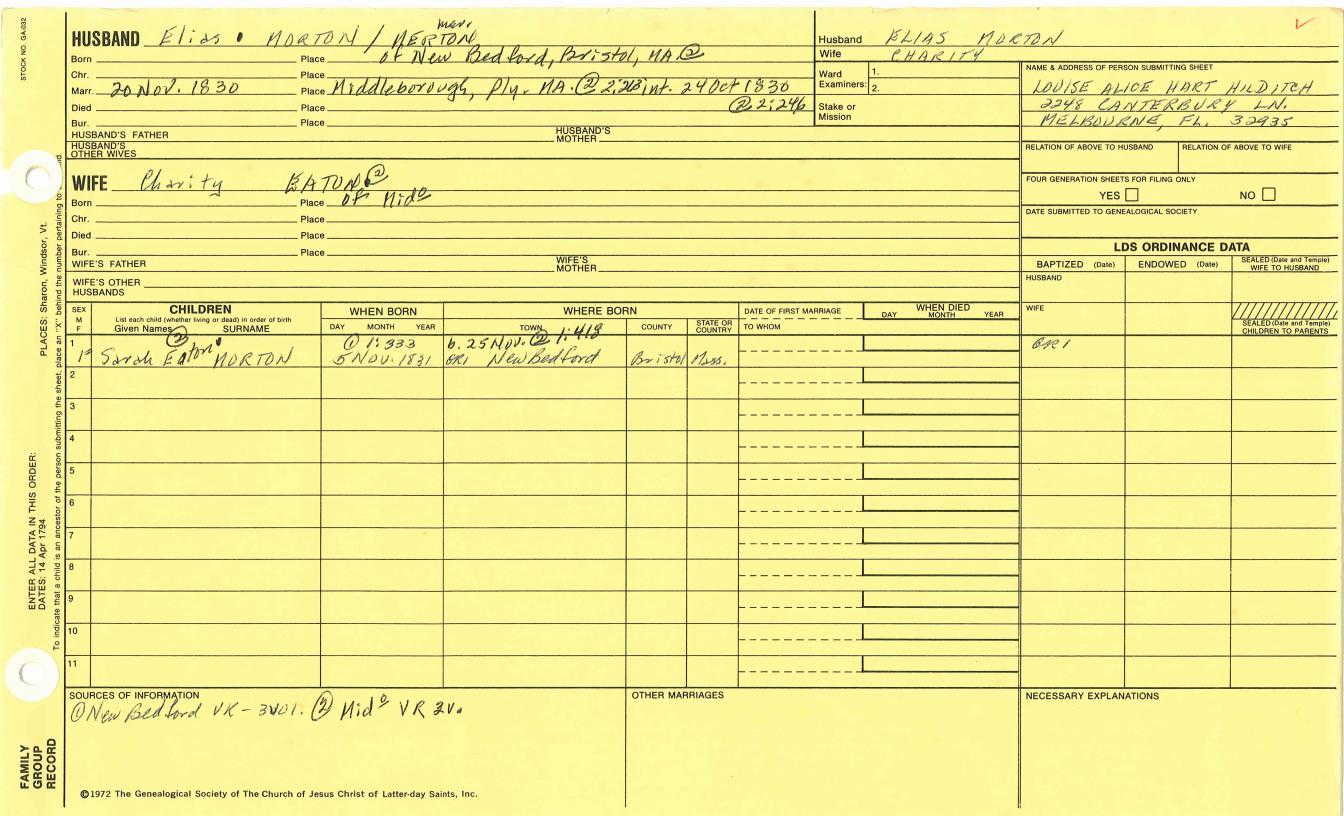 STOCK NO. GA-032
HUSBAND Elias MORTON / MERTON
Born Place of New Bedford, Bristol, MA ②
Chr. Place
Marr. 20 Nov. 1830 Place Middleborough, Ply. MA. ② int. 24 Oct 1830
② 2:246
Died Place
Bur. Place
HUSBAND'S FATHER HUSBAND'S MOTHER
HUSBAND'S OTHER WIVES
WIFE Charity EATON ②
Born Place of Mido
Chr. Place
Died Place
Bur. Place
WIFE'S FATHER WIFE'S MOTHER
WIFE'S OTHER HUSBANDS
Husband ELIAS MORTON
Wife CHARITY
Ward Examiners: 1.
2.
Stake or Mission
NAME & ADDRESS OF PERSON SUBMITTING SHEET
LOUISE ALICE HART HILDITCH
2248 CANTERBURY LN.
MELBOURNE, FL. 32935
RELATION OF ABOVE TO HUSBAND RELATION OF ABOVE TO WIFE
FOUR GENERATION SHEETS FOR FILING ONLY
YES NO
DATE SUBMITTED TO GENEALOGICAL SOCIETY
LDS ORDINANCE DATA
BAPTIZED (Date) ENDOWED (Date) SEALED (Date and Temple) WIFE TO HUSBAND
HUSBAND
WIFE
SEALED (Date and Temple) CHILDREN TO PARENTS
SEX M F
CHILDREN
List each child (whether living or dead) in order of birth
Given Names SURNAME
WHEN BORN
DAY MONTH YEAR
WHERE BORN
TOWN COUNTY STATE OR COUNTRY
DATE OF FIRST MARRIAGE
TO WHOM
WHEN DIED
DAY MONTH YEAR
② ① 1:333 b. 25 Nov. ② 1:418
1 Sarah Eaton MORTON 5 NOV. 1831 New Bedford Bristol Mass.
2
3
4
5
6
7
8
9
10
11
SOURCES OF INFORMATION
① New Bedford VR - 3 vol. ② Mido VR 2v.
OTHER MARRIAGES
NECESSARY EXPLANATIONS
©1972 The Genealogical Society of The Church of Jesus Christ of Latter-day Saints, Inc.
FAMILY GROUP RECORD
ENTER ALL DATA IN THIS ORDER:
DATES: 14 Apr 1794
PLACES: Sharon, Windsor, Vt.
To indicate that a child is an ancestor of the person submitting the sheet, place an "X" behind the number pertaining to